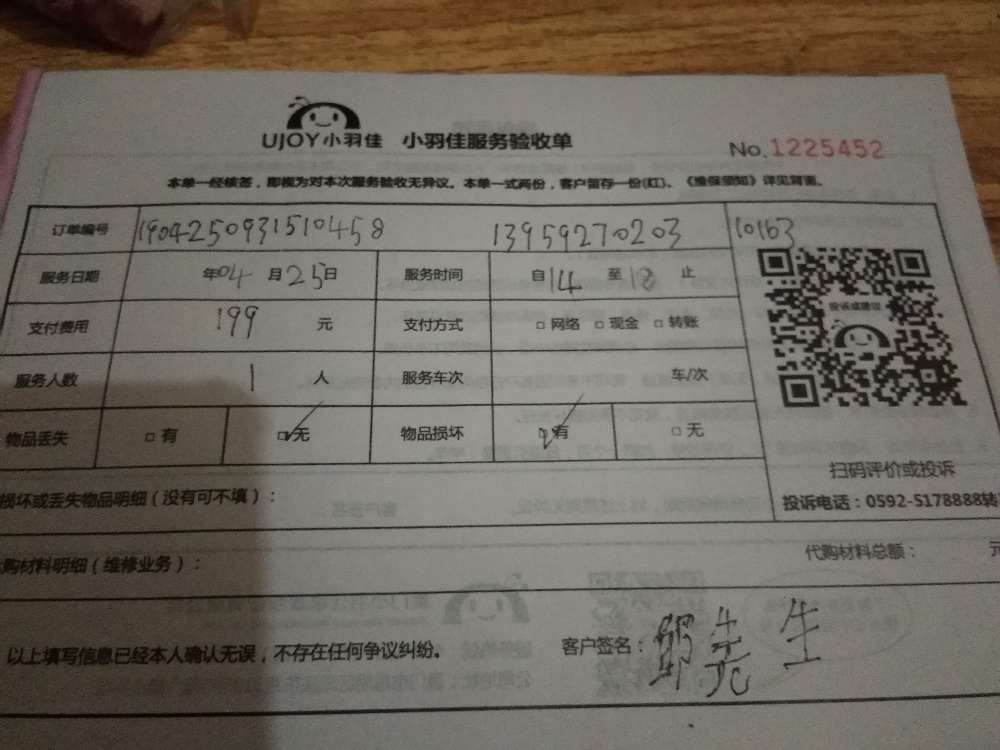 UJOY小羽佳 小羽佳服务验收单 No.1225452
本单一经核签，即视为对本次服务验收无异议。本单一式两份，客户留存一份(红)。《维保须知》详见背面。
订单编号 1904250931510458 13959270203 10163
服务日期 年04月25日 服务时间 自14至18止
投诉或建议
支付费用 199元 支付方式 □网络 □现金 □转账
服务人数 1人 服务车次 车/次
物品丢失 □有 ☑无 物品损坏 ☑有 □无
扫码评价或投诉
损坏或丢失物品明细（没有可不填）：
投诉电话：0592-5178888转
购材料明细（维修业务）： 代购材料总额： 元
以上填写信息已经本人确认无误，不存在任何争议纠纷。 客户签名： 先生